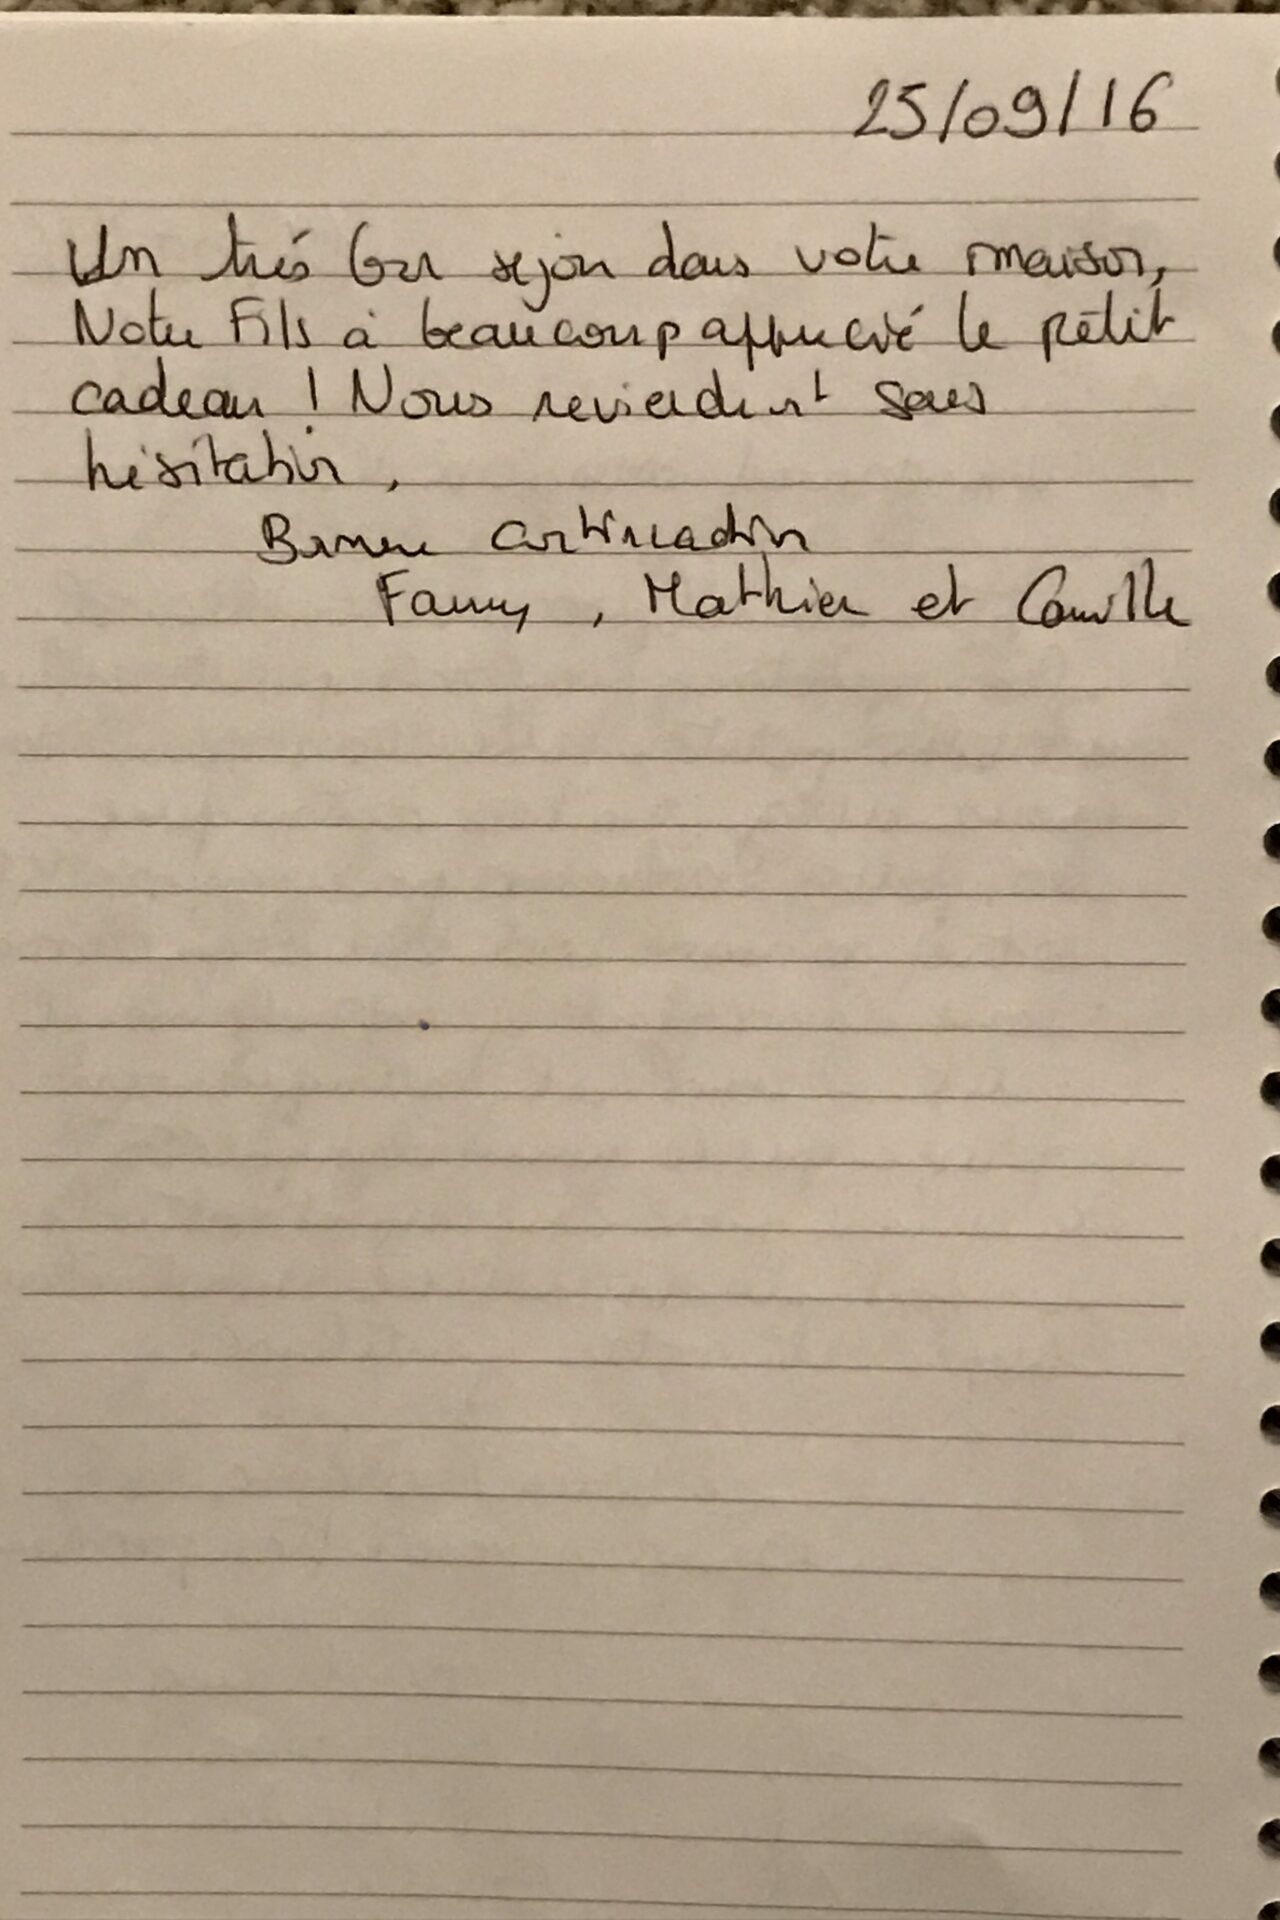 25/09/16
Un trés bon sejour dans votre maison,
Notre Fils à beaucoup apprecié le petit
cadeau ! Nous reviendront sans
hésitation.
Bonne continuation
Fanny, Mathieu et Camille